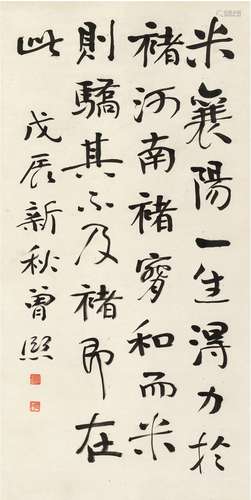 米襄陽一生得力於
褚河南褚窮和而米
則驕其不及褚即在
此
戊辰新秋曾熙